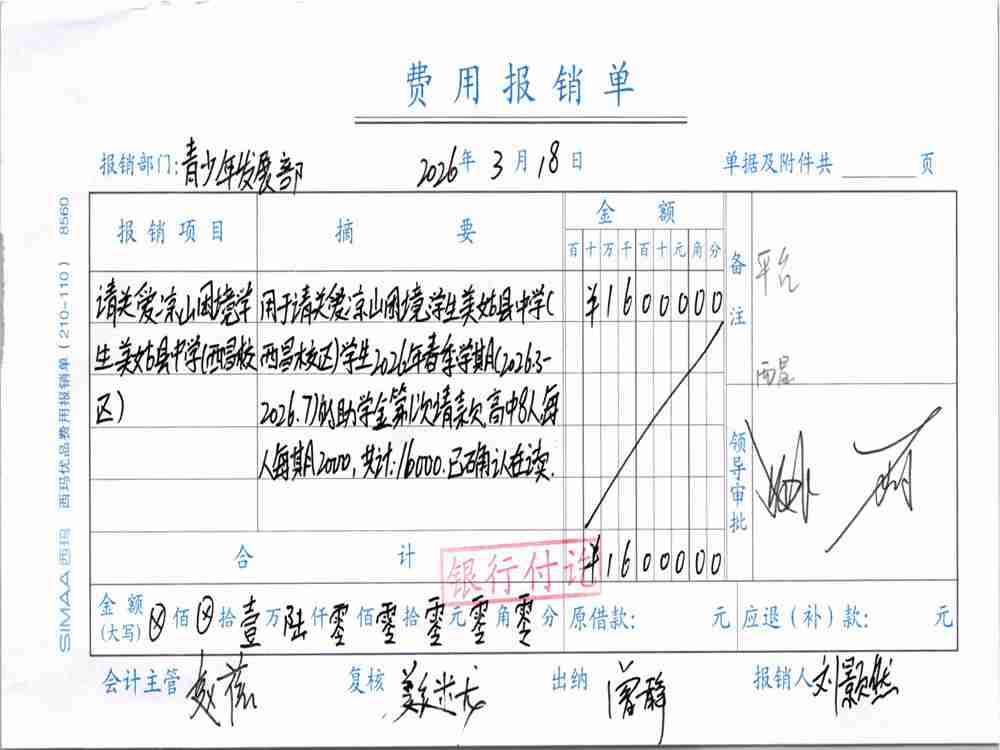 费用报销单
报销部门:青少年发展部 2026年3月18日 单据及附件共 页
报销项目 摘要 金额
百十万千百十元角分
备注
平台
请关爱凉山困境学 用于请关爱凉山困境学生美姑县中学( ¥16000000
生美姑县中学(西昌校 西昌校区)学生2026年春季学期(2026.3-
区) 2026.7)的助学金第1次请款,高中8人,每
人每期2000,共计:16000.已确认在读.
领导审批
合计 ¥1600000
银行付讫
金额(大写) ⊗佰⊗拾壹万陆仟零佰零拾零元零角零分 原借款: 元 应退(补)款: 元
会计主管 复核 出纳 曾静 报销人 刘颢然
SIMAA西玛 西玛优品费用报销单(210-110) 8560